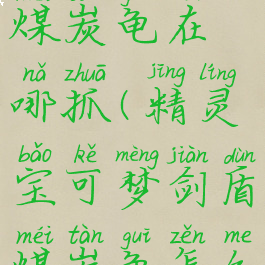 煤炭龟在
nǎ zhuā jīng líng
哪抓(精灵
bǎo kě mèng jiàn dùn
宝可梦剑盾
méi tàn guī zěn me
煤炭龟怎么